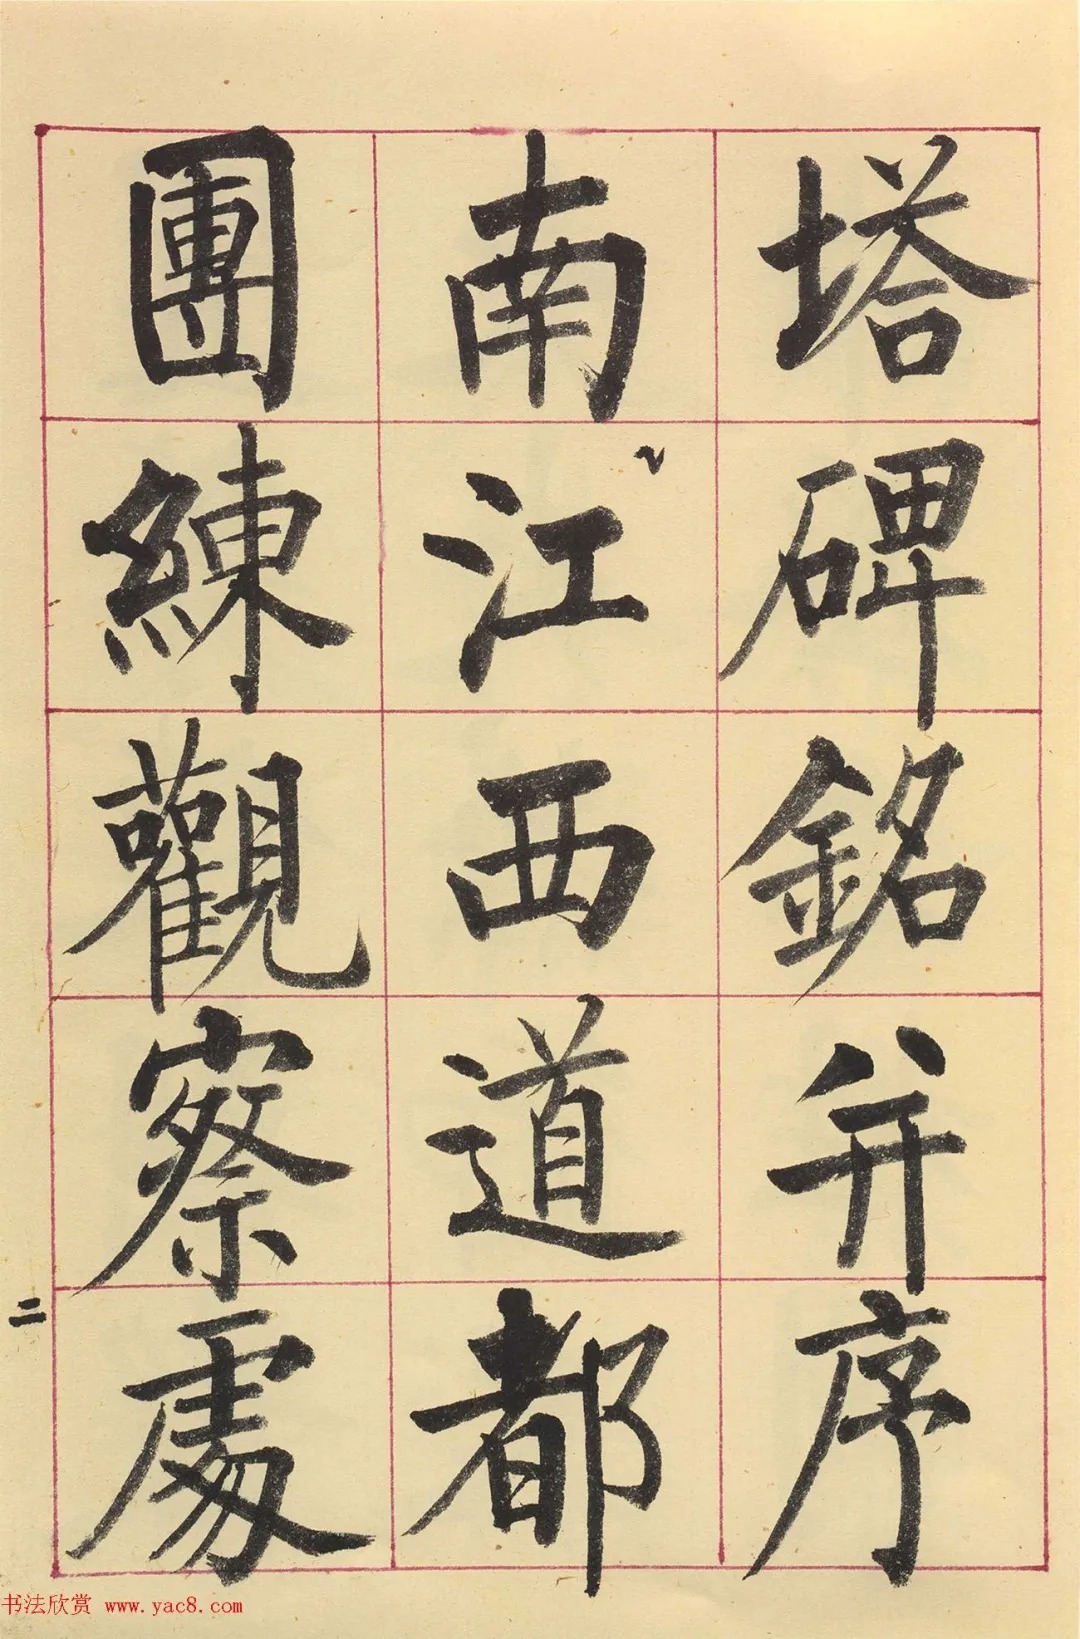 塔碑銘并序
南江西道都
團練觀察處
二
书法欣赏 www.yac8.com